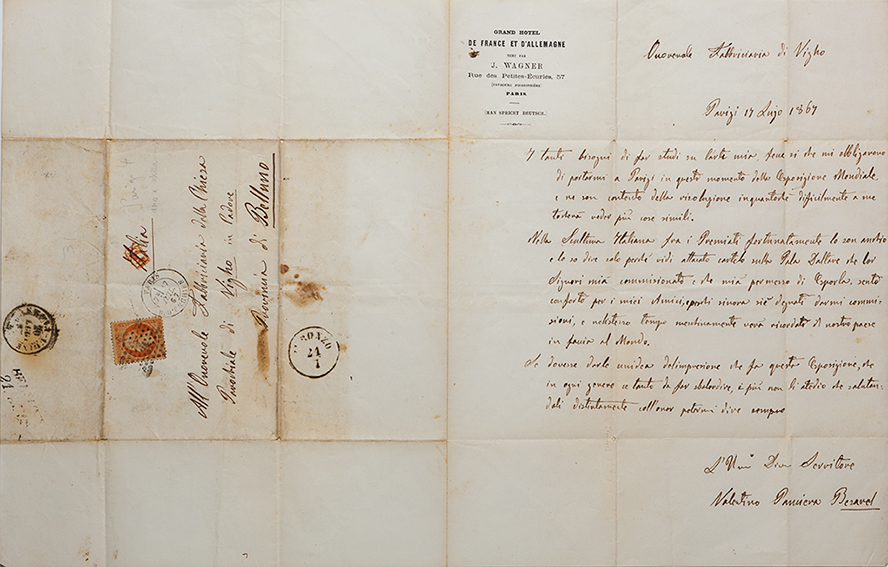 GRAND HOTEL
DE FRANCE ET D'ALLEMAGNE
TENU PAR
J. WAGNER
Rue des Petites-Écuries, 57
PARIS.
MAN SPRICHT DEUTSCH.
Onorevole Fabbriciaria di Vigho
Parigi 17 Lujo 1867
I tanti bisogni di far studi su l'arte mia, fece si che mi obbligarono
di portarmi a Parigi in questo momento della Esposizione Mondiale,
e ne son contento della risoluzione inquantochè difficilmente a me
tocherà veder più cose simili.
Nella Scultura Italiana fra i Premiati fortunatamente lo son anchio
e lo so dire solo perchè vidi attacato cartello sulla Pala D'altare che lor
Signori mià commissionato e che mià permesso di Esporla, sento
conforto per i miei Amici, eperchi sinora siè degnati darmi commis-
sioni, e nelistesso tempo meritevmente verà ricordato il nostro paese
in faccia al Mondo.
Se dovesse darle unidea dalimpresione che fa questa Esposizione, che
in ogni genere ce tanto da far sbalordire, e più non li atedio che salutan-
doli distintamente coll'onor potermi dire sempre
L'Um Dev Servitore
Valentino Panciera Besarel
All' Onorevole Fabbriciaria della Chiesa
Parochiale di Vigho in Cadore
Provincia di Belluno
Italia
PARIS
AURONZO
21
7